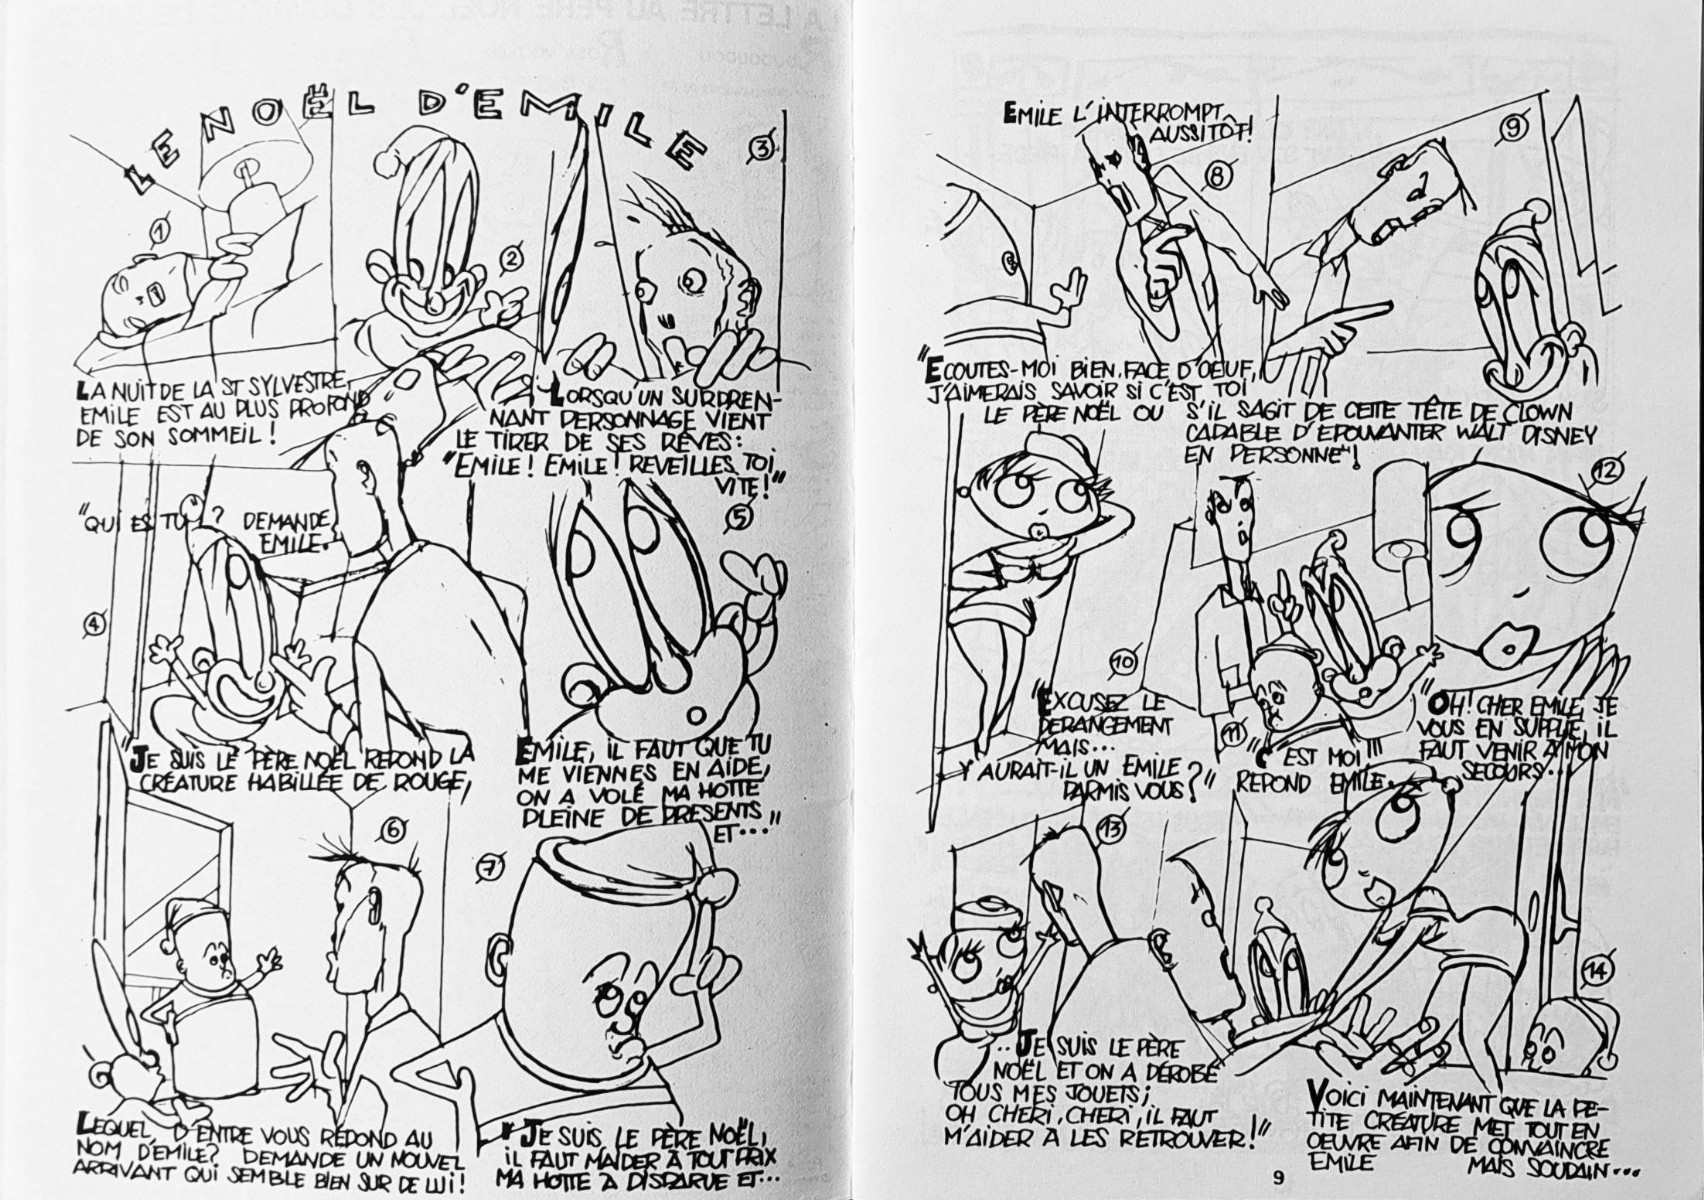 LE NOËL D'EMILE
1
2
3
LA NUIT DE LA ST SYLVESTRE,
EMILE EST AU PLUS PROFOND
DE SON SOMMEIL !
LORSQU'UN SURPREN-
NANT PERSONNAGE VIENT
LE TIRER DE SES RÊVES :
"EMILE ! EMILE ! REVEILLES TOI
VITE !"
4
"QUI ES TU" ? DEMANDE
EMILE.
5
"JE SUIS LE PÈRE NOËL REPOND LA
CRÉATURE HABILLÉE DE ROUGE,
EMILE, IL FAUT QUE TU
ME VIENNES EN AIDE,
ON A VOLÉ MA HOTTE
PLEINE DE PRESENTS
ET..."
6
7
LEQUEL D'ENTRE VOUS REPOND AU
NOM D'EMILE ? DEMANDE UN NOUVEL
ARRIVANT QUI SEMBLE BIEN SUR DE LUI !
"JE SUIS LE PÈRE NOËL,
IL FAUT M'AIDER À TOUT PRIX
MA HOTTE A DISPARUE ET...
EMILE L'INTERROMPT
AUSSITÔT !
8
9
"ECOUTES-MOI BIEN, FACE D'OEUF,
J'AIMERAIS SAVOIR SI C'EST TOI
LE PÈRE NOËL OU S'IL SAGIT DE CETTE TÊTE DE CLOWN
CAPABLE D'EPOUVANTER WALT DISNEY
EN PERSONNE" !
10
"EXCUSEZ LE
DERANGEMENT
MAIS...
Y AURAIT-IL UN EMILE
PARMIS VOUS ?"
11
"C'EST MOI"!!!
REPOND EMILE.
12
"OH ! CHER EMILE, JE
VOUS EN SUPPLIE, IL
FAUT VENIR À MON
SECOURS...
13
...JE SUIS LE PÈRE
NOËL ET ON A DÉROBÉ
TOUS MES JOUETS ;
OH CHERI, CHERI, IL FAUT
M'AIDER À LES RETROUVER !"
14
VOICI MAINTENANT QUE LA PE-
TITE CRÉATURE MET TOUT EN
OEUVRE AFIN DE CONVAINCRE
EMILE MAIS SOUDAIN...
9